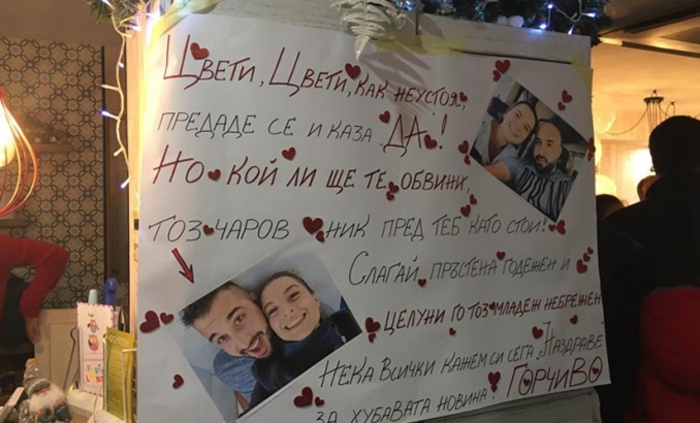 Цвети, Цвети, как неустоя,
предаде се и каза ДА!
Но кой ли ще те обвини,
тоз чаровник пред теб като стои!
Слагай пръстена годежен и
целуни го тоз младеж небрежен
Нека всички кажем си сега "Наздраве"
за хубавата новина! Горчиво